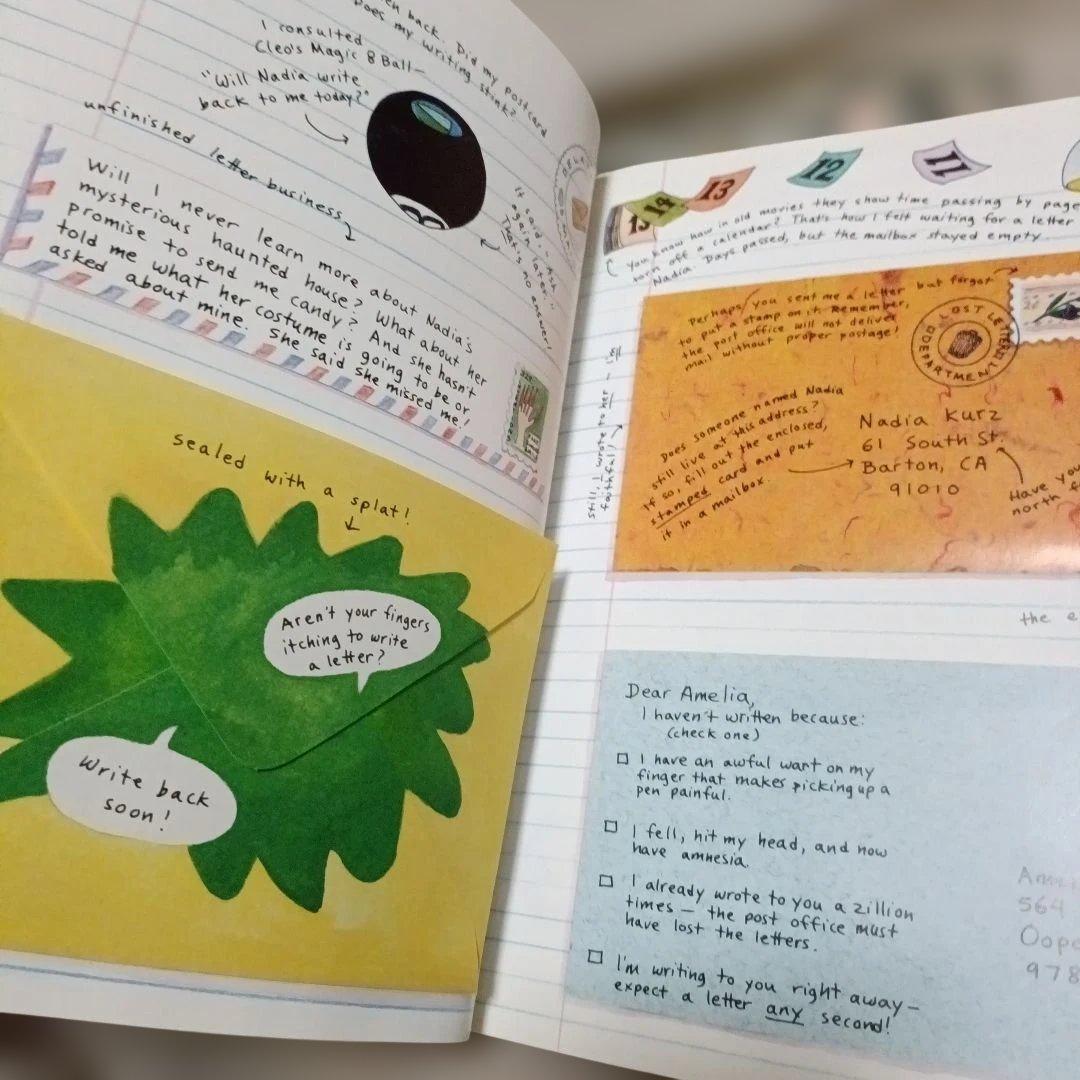 back. Did my postcard
Does my writing stink?
I consulted
Cleo's Magic 8 Ball—
"Will Nadia write
back to me today?"
It said, "Ask
again later."
That's no answer!
unfinished letter business
Will I never learn more about Nadia's
mysterious haunted house? What about her
promise to send me candy? And she hasn't
told me what her costume is going to be or
asked about mine. She said she missed me!
sealed with a splat!
Aren't your fingers
itching to write
a letter?
Write back
soon!
15
14
13
12
11
You know how in old movies they show time passing by page
turn off a calendar? That's how I felt waiting for a letter
Nadia. Days passed, but the mailbox stayed empty
Perhaps you sent me a letter but forgot
to put a stamp on it. Remember,
the post office will not deliver
mail without proper postage!
LOST LETTER
DEPARTMENT
still, I wrote to her – I'm
faithful!
Does someone named Nadia
still live at this address?
If so, fill out the enclosed,
stamped card and put
it in a mailbox.
Nadia Kurz
61 South St.
Barton, CA
91010
Have you
north
the
Dear Amelia,
I haven't written because:
(check one)
I have an awful wart on my
finger that makes picking up a
pen painful.
I fell, hit my head, and now
have amnesia.
I already wrote to you a zillion
times — the post office must
have lost the letters.
I'm writing to you right away—
expect a letter any second!
564
Oopa
978